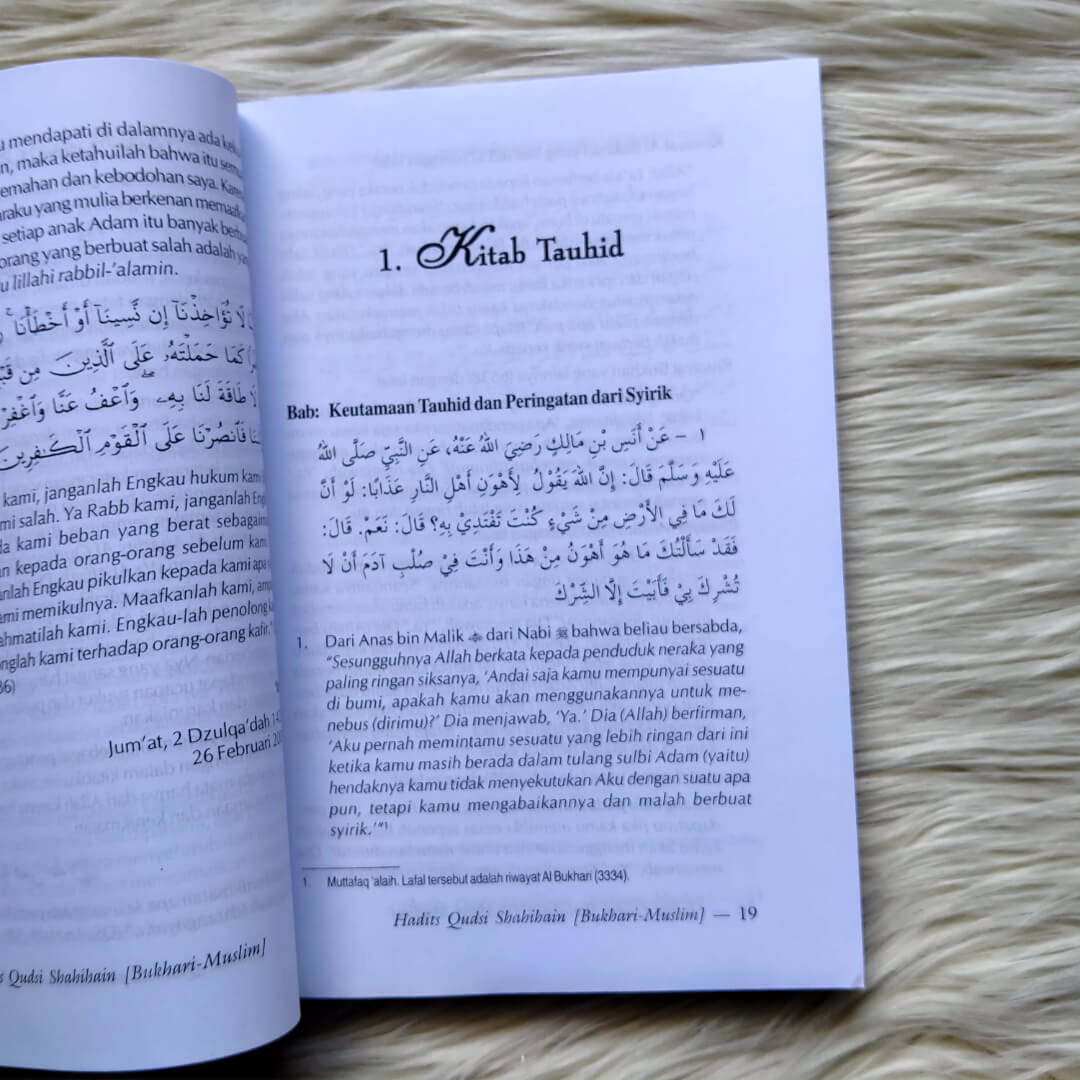 mendapati di dalamnya ada
maka ketahuilah bahwa itu
dan kebodohan saya.
yang mulia berkenan
setiap anak Adam itu banyak
orang yang berbuat salah adalah
lillahi rabbil-'alamin.
لَا تُؤَاخِذْنَآ إِن نَّسِينَآ أَوْ أَخْطَأْنَا
كَمَا حَمَلْتَهُۥ عَلَى ٱلَّذِينَ مِن
لَا طَاقَةَ لَنَا بِهِۦ ۖ وَٱعْفُ عَنَّا وَٱغْفِرْ
فَٱنصُرْنَا عَلَى ٱلْقَوْمِ ٱلْكَـٰفِرِينَ
kami, janganlah Engkau hukum
salah. Ya Rabb kami, janganlah
kami beban yang berat
kepada orang-orang sebelum
Engkau pikulkan kepada kami
memikulnya. Maafkanlah kami,
kami. Engkau-lah penolong
kami terhadap orang-orang kafir.
Jum'at, 2 Dzulqa'dah
26 Februari
Qudsi Shahihain [Bukhari-Muslim]
1. Kitab Tauhid
Bab: Keutamaan Tauhid dan Peringatan dari Syirik
١ - عَنْ أَنَسِ بْنِ مَالِكٍ رَضِيَ اللهُ عَنْهُ، عَنِ النَّبِيِّ صَلَّى اللهُ
عَلَيْهِ وَسَلَّمَ قَالَ: إِنَّ اللهَ يَقُوْلُ لِأَهْوَنِ أَهْلِ النَّارِ عَذَابًا: لَوْ أَنَّ
لَكَ مَا فِي الْأَرْضِ مِنْ شَيْءٍ كُنْتَ تَفْتَدِيْ بِهِ؟ قَالَ: نَعَمْ. قَالَ:
فَقَدْ سَأَلْتُكَ مَا هُوَ أَهْوَنُ مِنْ هَذَا وَأَنْتَ فِيْ صُلْبِ آدَمَ أَنْ لَا
تُشْرِكَ بِيْ فَأَبَيْتَ إِلَّا الشِّرْكَ
1. Dari Anas bin Malik dari Nabi ﷺ bahwa beliau bersabda,
"Sesungguhnya Allah berkata kepada penduduk neraka yang
paling ringan siksanya, 'Andai saja kamu mempunyai sesuatu
di bumi, apakah kamu akan menggunakannya untuk me-
nebus (dirimu)?' Dia menjawab, 'Ya.' Dia (Allah) berfirman,
'Aku pernah memintamu sesuatu yang lebih ringan dari ini
ketika kamu masih berada dalam tulang sulbi Adam (yaitu)
hendaknya kamu tidak menyekutukan Aku dengan suatu apa
pun, tetapi kamu mengabaikannya dan malah berbuat
syirik.'"1
1. Muttafaq 'alaih. Lafal tersebut adalah riwayat Al Bukhari (3334).
Hadits Qudsi Shahihain [Bukhari-Muslim] — 19